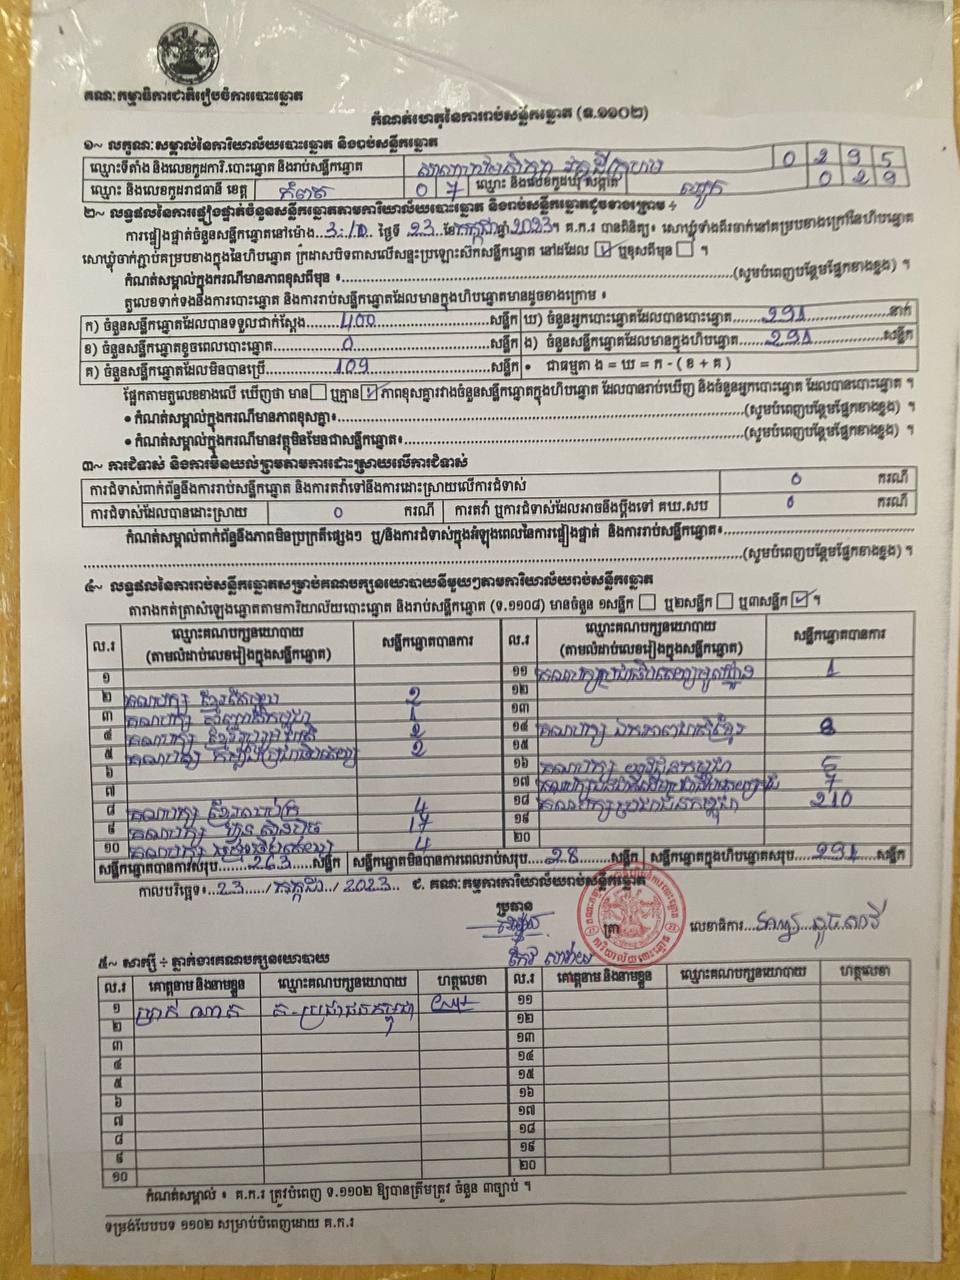 គណៈកម្មាធិការជាតិរៀបចំការបោះឆ្នោត
កំណត់ហេតុនៃការរាប់សន្លឹកឆ្នោត (ទ.១១០២)
១~ លក្ខណៈសម្គាល់នៃការិយាល័យបោះឆ្នោត និងរាប់សន្លឹកឆ្នោត
ឈ្មោះទីតាំង និងលេខកូដការិ.បោះឆ្នោត និងរាប់សន្លឹកឆ្នោត 0 2 9 5
ឈ្មោះ និងលេខកូដរាជធានី ខេត្ត កំពត 0 7 ឈ្មោះ និងលេខកូដឃុំ សង្កាត់ 0 2 9
២~ លទ្ធផលនៃការផ្ទៀងផ្ទាត់ចំនួនសន្លឹកឆ្នោតតាមការិយាល័យបោះឆ្នោត និងរាប់សន្លឹកឆ្នោតដូចខាងក្រោម ÷
ការផ្ទៀងផ្ទាត់ចំនួនសន្លឹកឆ្នោតនៅម៉ោង 3:10 ថ្ងៃទី 23 ខែ កក្កដា ឆ្នាំ 2023។ គ.ក.រ បានពិនិត្យ៖ សោឃ្លុំទាំងពីរចាក់នៅគម្របខាងក្រៅនៃហិបឆ្នោត
សោឃ្លុំចាក់ភ្ជាប់គម្របខាងក្នុងនៃហិបឆ្នោត ក្រដាសបិទពាសលើសន្ទះប្រឡោះស៊កសន្លឹកឆ្នោត នៅដដែល ☑ ឬខុសពីមុន ☐ ។
កំណត់សម្គាល់ក្នុងករណីមានភាពខុសពីមុន ៖ (សូមបំពេញបន្ថែមផ្នែកខាងខ្នង) ។
តួលេខទាក់ទងនឹងការបោះឆ្នោត និងការរាប់សន្លឹកឆ្នោតដែលមានក្នុងហិបឆ្នោតមានដូចខាងក្រោម ៖
ក) ចំនួនសន្លឹកឆ្នោតដែលបានទទួលជាក់ស្តែង 400 សន្លឹក ឃ) ចំនួនអ្នកបោះឆ្នោតដែលបានបោះឆ្នោត 291 នាក់
ខ) ចំនួនសន្លឹកឆ្នោតខូចពេលបោះឆ្នោត 0 សន្លឹក ង) ចំនួនសន្លឹកឆ្នោតដែលមានក្នុងហិបឆ្នោត 291 សន្លឹក
គ) ចំនួនសន្លឹកឆ្នោតដែលមិនបានប្រើ 109 សន្លឹក • ជាធម្មតា ង = ឃ = ក - ( ខ + គ )
ផ្អែកតាមតួលេខខាងលើ ឃើញថា មាន ☐ ឬគ្មាន ☑ ភាពខុសគ្នារវាងចំនួនសន្លឹកឆ្នោតក្នុងហិបឆ្នោត ដែលបានរាប់ឃើញ និងចំនួនអ្នកបោះឆ្នោត ដែលបានបោះឆ្នោត ។
• កំណត់សម្គាល់ក្នុងករណីមានភាពខុសគ្នា៖ (សូមបំពេញបន្ថែមផ្នែកខាងខ្នង) ។
• កំណត់សម្គាល់ក្នុងករណីមានវត្ថុមិនមែនជាសន្លឹកឆ្នោត៖ (សូមបំពេញបន្ថែមផ្នែកខាងខ្នង) ។
៣~ ការជំទាស់ និងការមិនយល់ព្រមតាមការដោះស្រាយលើការជំទាស់
ការជំទាស់ពាក់ព័ន្ធនឹងការរាប់សន្លឹកឆ្នោត និងការតវ៉ាទៅនឹងការដោះស្រាយលើការជំទាស់ 0 ករណី
ការជំទាស់ដែលបានដោះស្រាយ 0 ករណី ការតវ៉ា ឬការជំទាស់ដែលអាចនឹងប្តឹងទៅ គឃ.សប 0 ករណី
កំណត់សម្គាល់ពាក់ព័ន្ធនឹងភាពមិនប្រក្រតីផ្សេងៗ ឬ/និងការជំទាស់ក្នុងអំឡុងពេលនៃការផ្ទៀងផ្ទាត់ និងការរាប់សន្លឹកឆ្នោត៖
(សូមបំពេញបន្ថែមផ្នែកខាងខ្នង) ។
៤~ លទ្ធផលនៃការរាប់សន្លឹកឆ្នោតសម្រាប់គណបក្សនយោបាយនីមួយៗតាមការិយាល័យរាប់សន្លឹកឆ្នោត
តារាងកត់ត្រាសំឡេងឆ្នោតតាមការិយាល័យបោះឆ្នោត និងរាប់សន្លឹកឆ្នោត (ទ.១១០៨) មានចំនួន ១សន្លឹក ☐ ឬ២សន្លឹក ☐ ឬ៣សន្លឹក ☑ ។
ល.រ ឈ្មោះគណបក្សនយោបាយ សន្លឹកឆ្នោតបានការ ល.រ ឈ្មោះគណបក្សនយោបាយ សន្លឹកឆ្នោតបានការ
(តាមលំដាប់លេខរៀងក្នុងសន្លឹកឆ្នោត) (តាមលំដាប់លេខរៀងក្នុងសន្លឹកឆ្នោត)
១ ១១ គណបក្ស 1
២ គណបក្ស 2 ១២
៣ គណបក្ស 1 ១៣
៤ គណបក្ស 2 ១៤ គណបក្ស ឯកភាពជាតិខ្មែរ 8
៥ គណបក្ស 2 ១៥
៦ ១៦ គណបក្ស យុវជនកម្ពុជា 5
៧ ១៧ គណបក្ស 7
៨ គណបក្ស 4 ១៨ គណបក្សប្រជាជនកម្ពុជា 210
៩ គណបក្ស 17 ១៩
១០ គណបក្ស 4 ២០
សន្លឹកឆ្នោតបានការសរុប 263 សន្លឹក សន្លឹកឆ្នោតមិនបានការពេលរាប់សរុប 28 សន្លឹក សន្លឹកឆ្នោតក្នុងហិបឆ្នោតសរុប 291 សន្លឹក
កាលបរិច្ឆេទ៖ 23 / កក្កដា / 2023 ជ. គណៈកម្មការការិយាល័យរាប់សន្លឹកឆ្នោត
ប្រធាន ត្រា លេខាធិការ
៥~ សាក្សី ÷ ភ្នាក់ងារគណបក្សនយោបាយ
ល.រ គោត្តនាម និងនាមខ្លួន ឈ្មោះគណបក្សនយោបាយ ហត្ថលេខា ល.រ គោត្តនាម និងនាមខ្លួន ឈ្មោះគណបក្សនយោបាយ ហត្ថលេខា
១ គ-ប្រជាជនកម្ពុជា ១១
២ ១២
៣ ១៣
៤ ១៤
៥ ១៥
៦ ១៦
៧ ១៧
៨ ១៨
៩ ១៩
១០ ២០
កំណត់សម្គាល់ ៖ គ.ក.រ ត្រូវបំពេញ ទ.១១០២ ឱ្យបានត្រឹមត្រូវ ចំនួន ៣ច្បាប់ ។
ទម្រង់បែបបទ ១១០២ សម្រាប់បំពេញដោយ គ.ក.រ